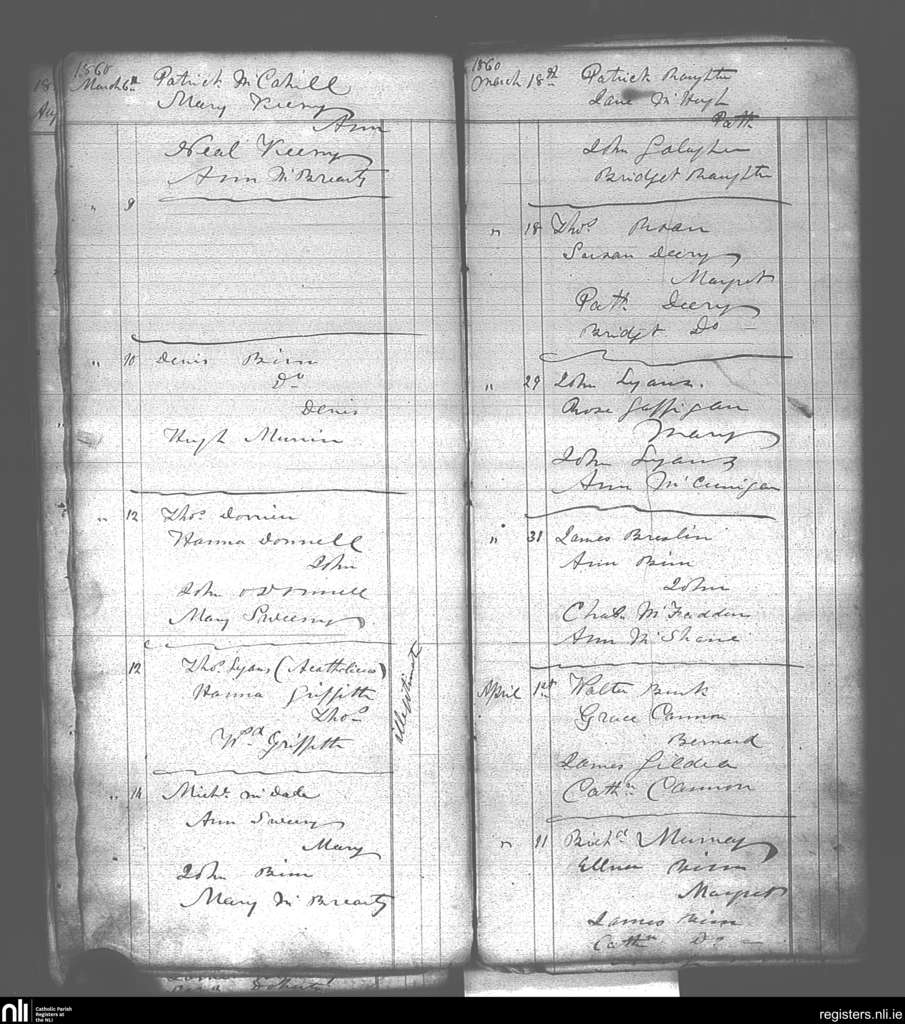 1860
March 6th Patrick McCahill
Mary Keeny
Ann
Neal Keeny
Ann McBrearty
" 9
" 10 Denis Birn
Do
Denis
Hugh
" 12 Thos Dorrien
Hanna Donnell
John
John O'Donnell
Mary Sweeny
12 Thos Lyans (Acatholicus)
Hanna Griffith
Thos
Griffith
illegitimate
" 14 Michl McDade
Ann Sweeny
Mary
John Birn
Mary McBrearty
1860
March 18th Patrick
Jane McHugh
Patk
John Galagher
Bridget
" 18 Thos
Susan Deery
Margret
Patk Deery
Bridgt Do
" 29 John Lyans.
Rose Gaffigan
Mary
John Lyans
Ann McCunigan
" 31 James Breslin
Ann Birn
John
Chas McFadden
Ann McShane
April 1st Walter
Grace Cannon
Bernard
James Gildea
Cathn Cannon
" 11 Murray
Ellner Birn
Margret
James Birn
Cathn Do
nli
Catholic Parish
Registers at
the NLI
registers.nli.ie